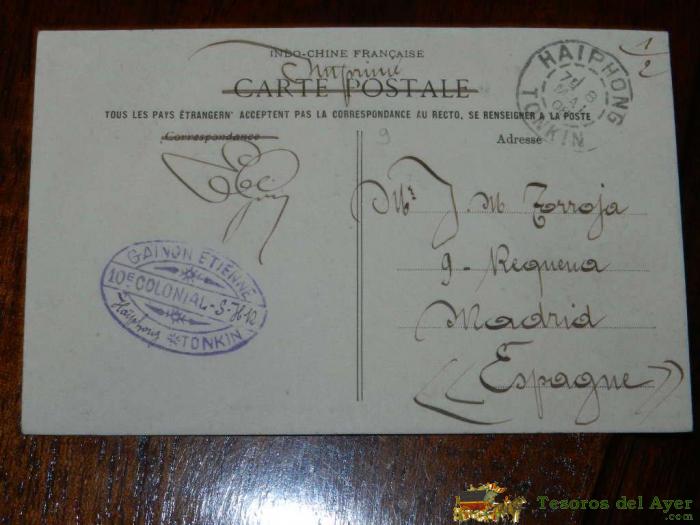 INDO-CHINE FRANÇAISE
Imprimé
CARTE POSTALE
TOUS LES PAYS ÉTRANGERN' ACCEPTENT PAS LA CORRESPONDANCE AU RECTO, SE RENSEIGNER A LA POSTE
Correspondance
Adresse
HAIPHONG
8
MAI
TONKIN
1/2
9
Mr J. M Torroja
9 - Requena
Madrid
((Espagne))
GAINON ETIENNE
10E COLONIAL - S - H 12
Haïphong TONKIN
Tesoros del Ayer
.com